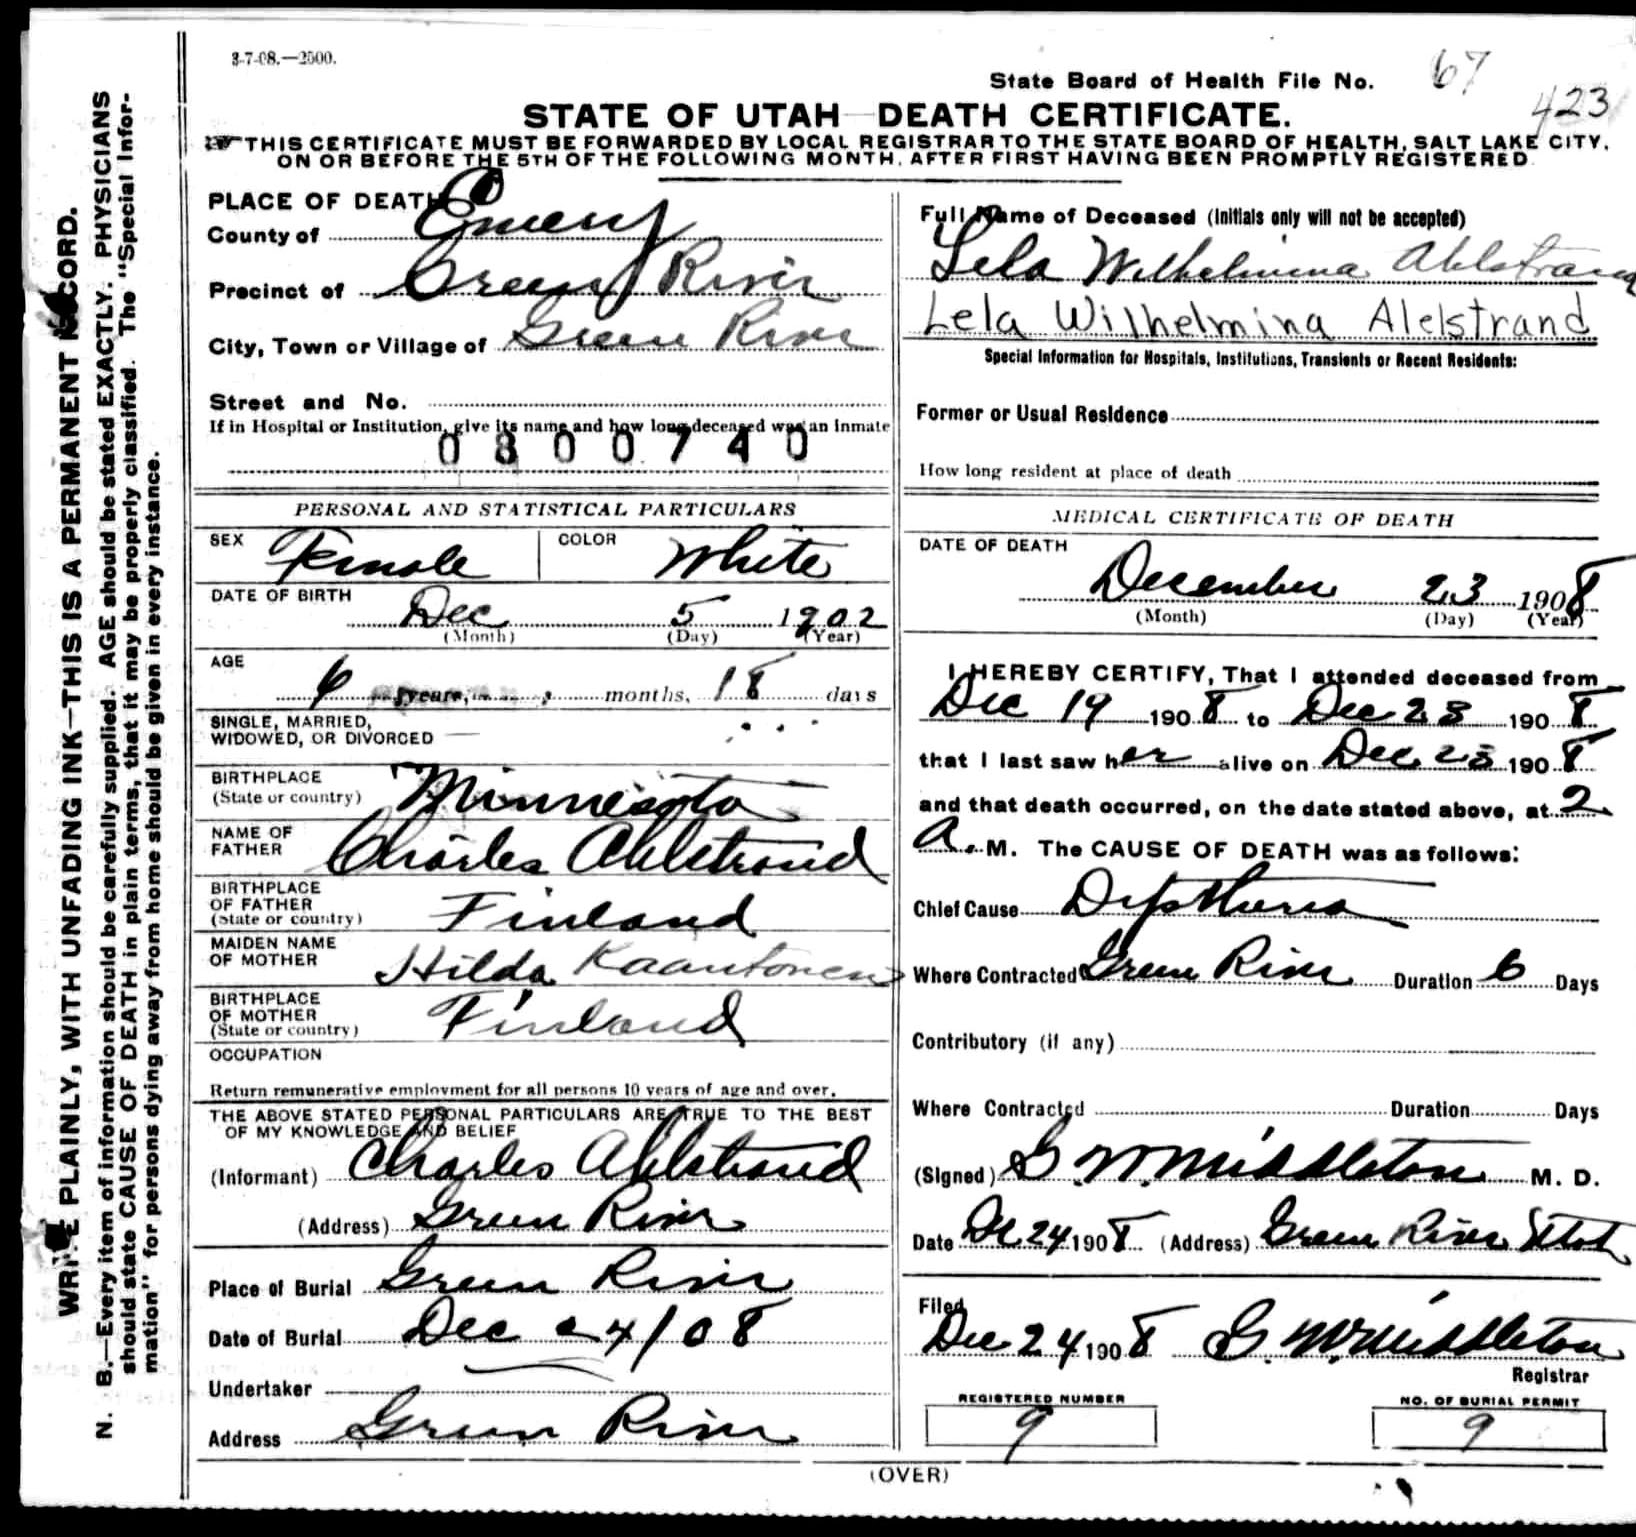 3-7-08.—2500.
State Board of Health File No. 67
423
STATE OF UTAH—DEATH CERTIFICATE.
THIS CERTIFICATE MUST BE FORWARDED BY LOCAL REGISTRAR TO THE STATE BOARD OF HEALTH, SALT LAKE CITY,
ON OR BEFORE THE 5TH OF THE FOLLOWING MONTH, AFTER FIRST HAVING BEEN PROMPTLY REGISTERED.
WRITE PLAINLY, WITH UNFADING INK—THIS IS A PERMANENT RECORD.
N. B.—Every item of information should be carefully supplied. AGE should be stated EXACTLY. PHYSICIANS
should state CAUSE OF DEATH in plain terms, that it may be properly classified. The "Special Infor-
mation" for persons dying away from home should be given in every instance.
PLACE OF DEATH
County of Emery
Precinct of Green River
City, Town or Village of Green River
Street and No.
If in Hospital or Institution, give its name and how long deceased was an inmate
0300740
PERSONAL AND STATISTICAL PARTICULARS
SEX Female COLOR White
DATE OF BIRTH
Dec 5 1902
(Month) (Day) (Year)
AGE
6 years, months, 18 days
SINGLE, MARRIED,
WIDOWED, OR DIVORCED —
BIRTHPLACE
(State or country) Minnesota
NAME OF
FATHER Charles Ahlstrand
BIRTHPLACE
OF FATHER
(State or country) Finland
MAIDEN NAME
OF MOTHER Hilda Kaantonen
BIRTHPLACE
OF MOTHER
(State or country) Finland
OCCUPATION
Return remunerative employment for all persons 10 years of age and over.
THE ABOVE STATED PERSONAL PARTICULARS ARE TRUE TO THE BEST
OF MY KNOWLEDGE AND BELIEF
(Informant) Charles Ahlstrand
(Address) Green River
Place of Burial Green River
Date of Burial Dec 24/08
Undertaker
Address Green River
Full Name of Deceased (Initials only will not be accepted)
Lela Wilhelmina Ahlstrand
Lela Wilhelmina Alelstrand
Special Information for Hospitals, Institutions, Transients or Recent Residents:
Former or Usual Residence
How long resident at place of death
MEDICAL CERTIFICATE OF DEATH
DATE OF DEATH
December 23 1908
(Month) (Day) (Year)
I HEREBY CERTIFY, That I attended deceased from
Dec 19 1908 to Dec 23 1908
that I last saw her alive on Dec 23 1908
and that death occurred, on the date stated above, at 2
a. M. The CAUSE OF DEATH was as follows:
Chief Cause Diptheria
Where Contracted Green River Duration 6 Days
Contributory (if any)
Where Contracted Duration Days
(Signed) G. W. Middleton M. D.
Date De 24 1908 (Address) Green River Utah
Filed
Dec 24 1908 G. W. Middleton
Registrar
REGISTERED NUMBER
9
NO. OF BURIAL PERMIT
9
(OVER)